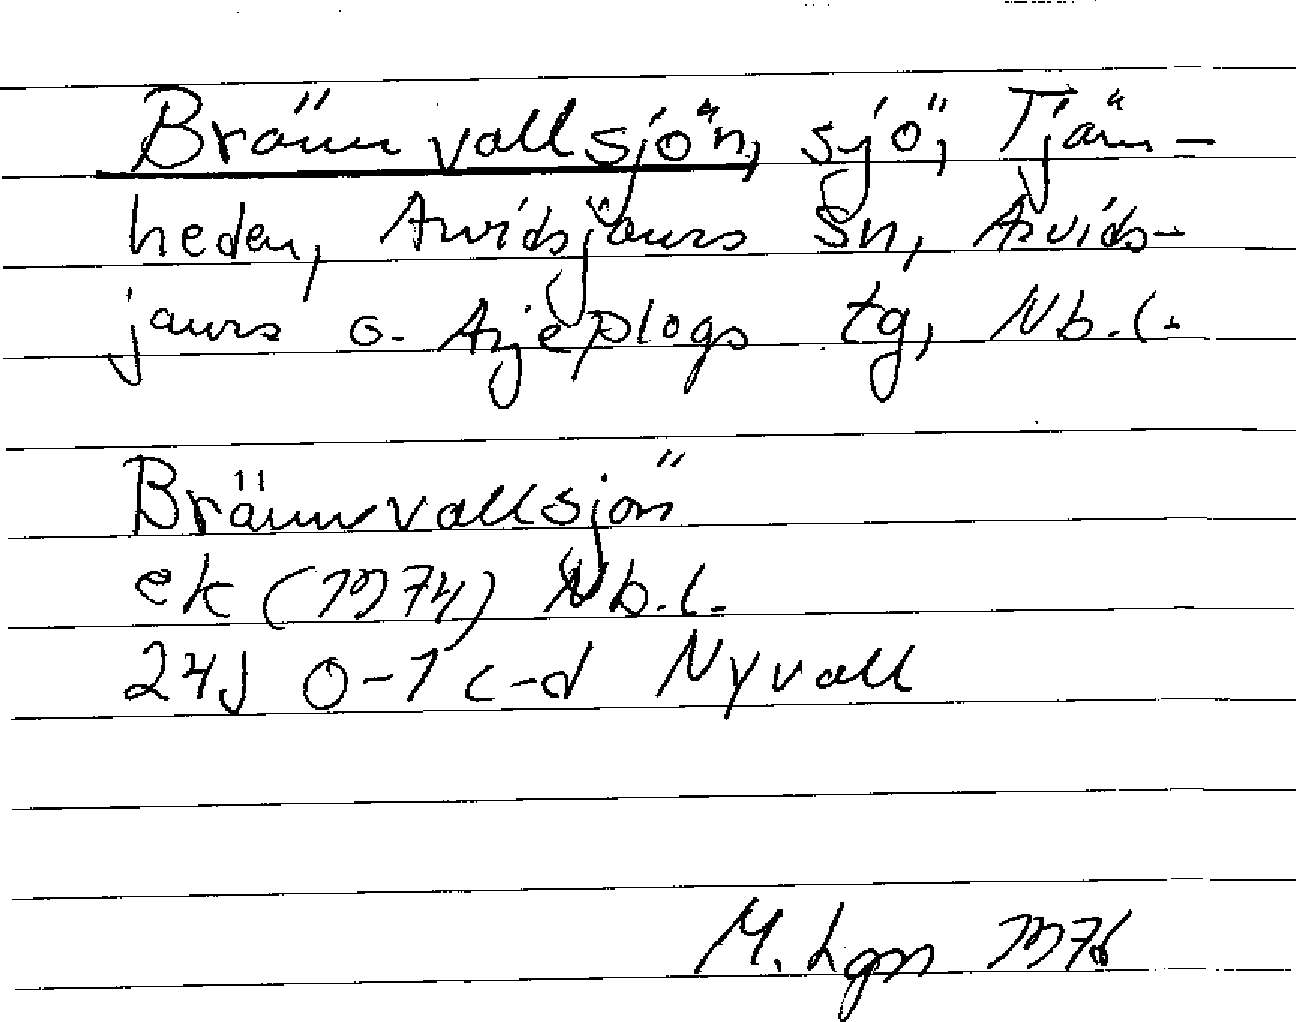 Brännvallsjön, sjö, Tjärn-
heden, Arvidsjaurs sn, Arvids-
jaurs o. Arjeplogs tg, Nb.l.
Brännvallsjön
ek (1974) Nb.l.
24J 0-1 c-d Nyvall
M. Lgn 1976